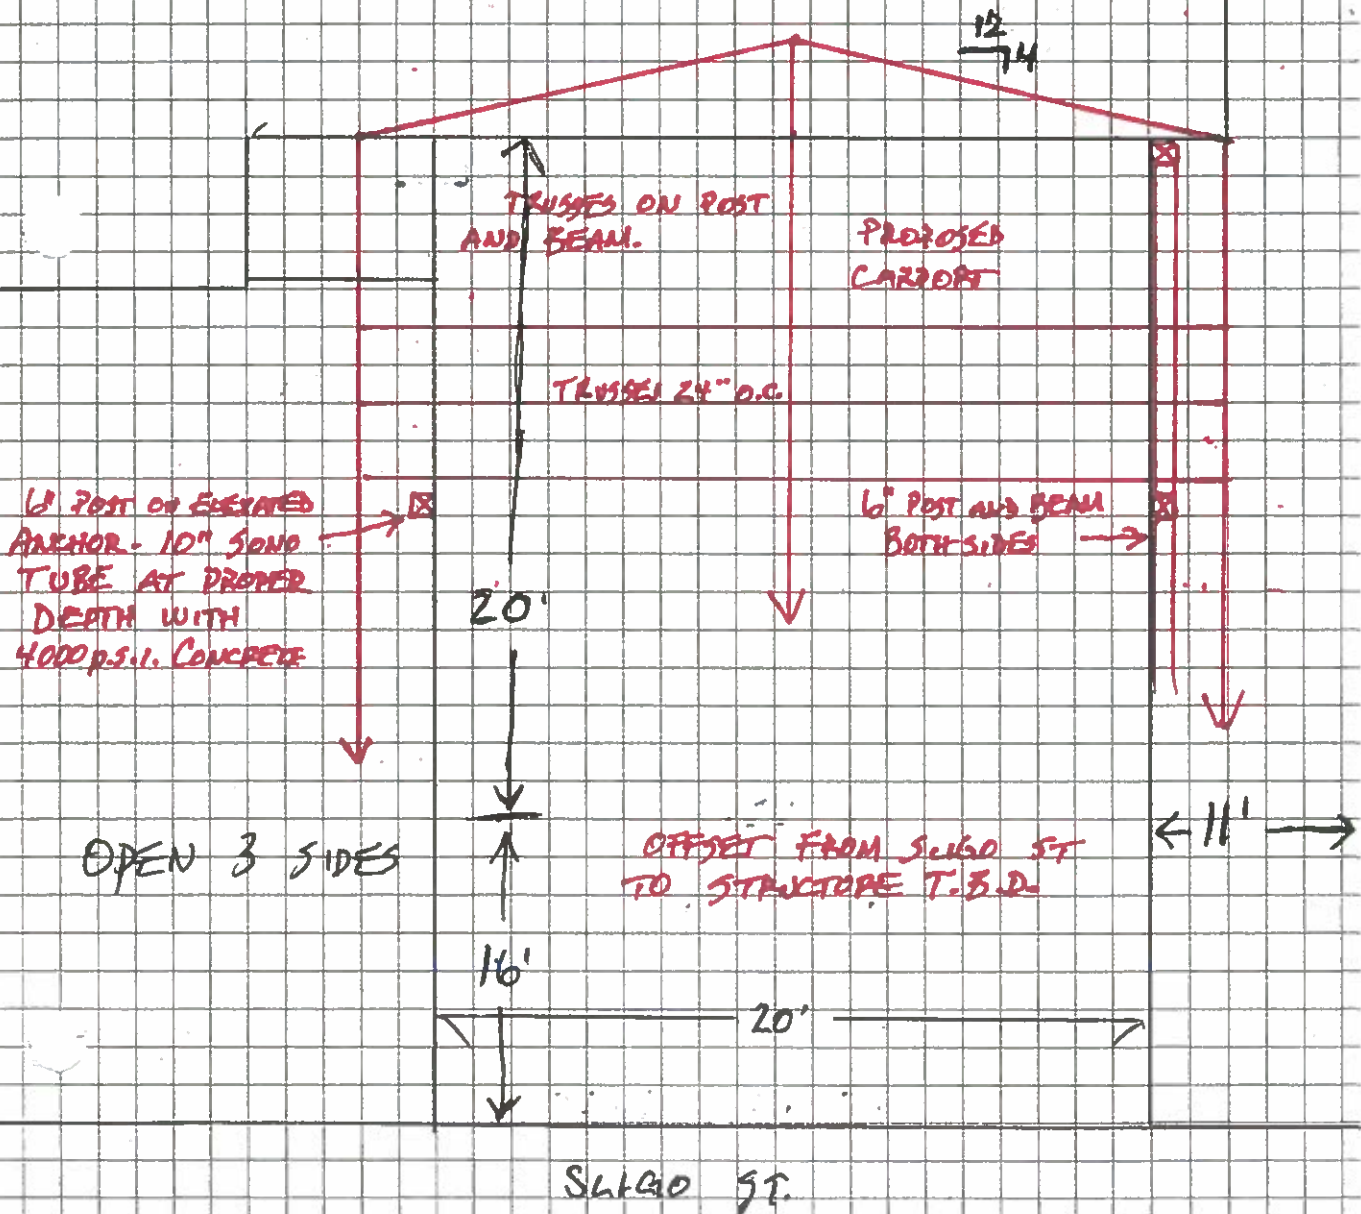 12
4
TRUSSES ON POST
AND BEAM.
PROPOSED
CARPORT
TRUSSES 24" O.C.
6" POST ON ELEVATED
ANCHOR - 10" SONO
TUBE AT PROPER
DEPTH WITH
4000 p.s.i. CONCRETE
6" POST AND BEAM
BOTH SIDES
20'
11'
OPEN 3 SIDES
OFFSET FROM SLIGO ST
TO STRUCTURE T.B.D.
16'
20'
SLIGO ST.